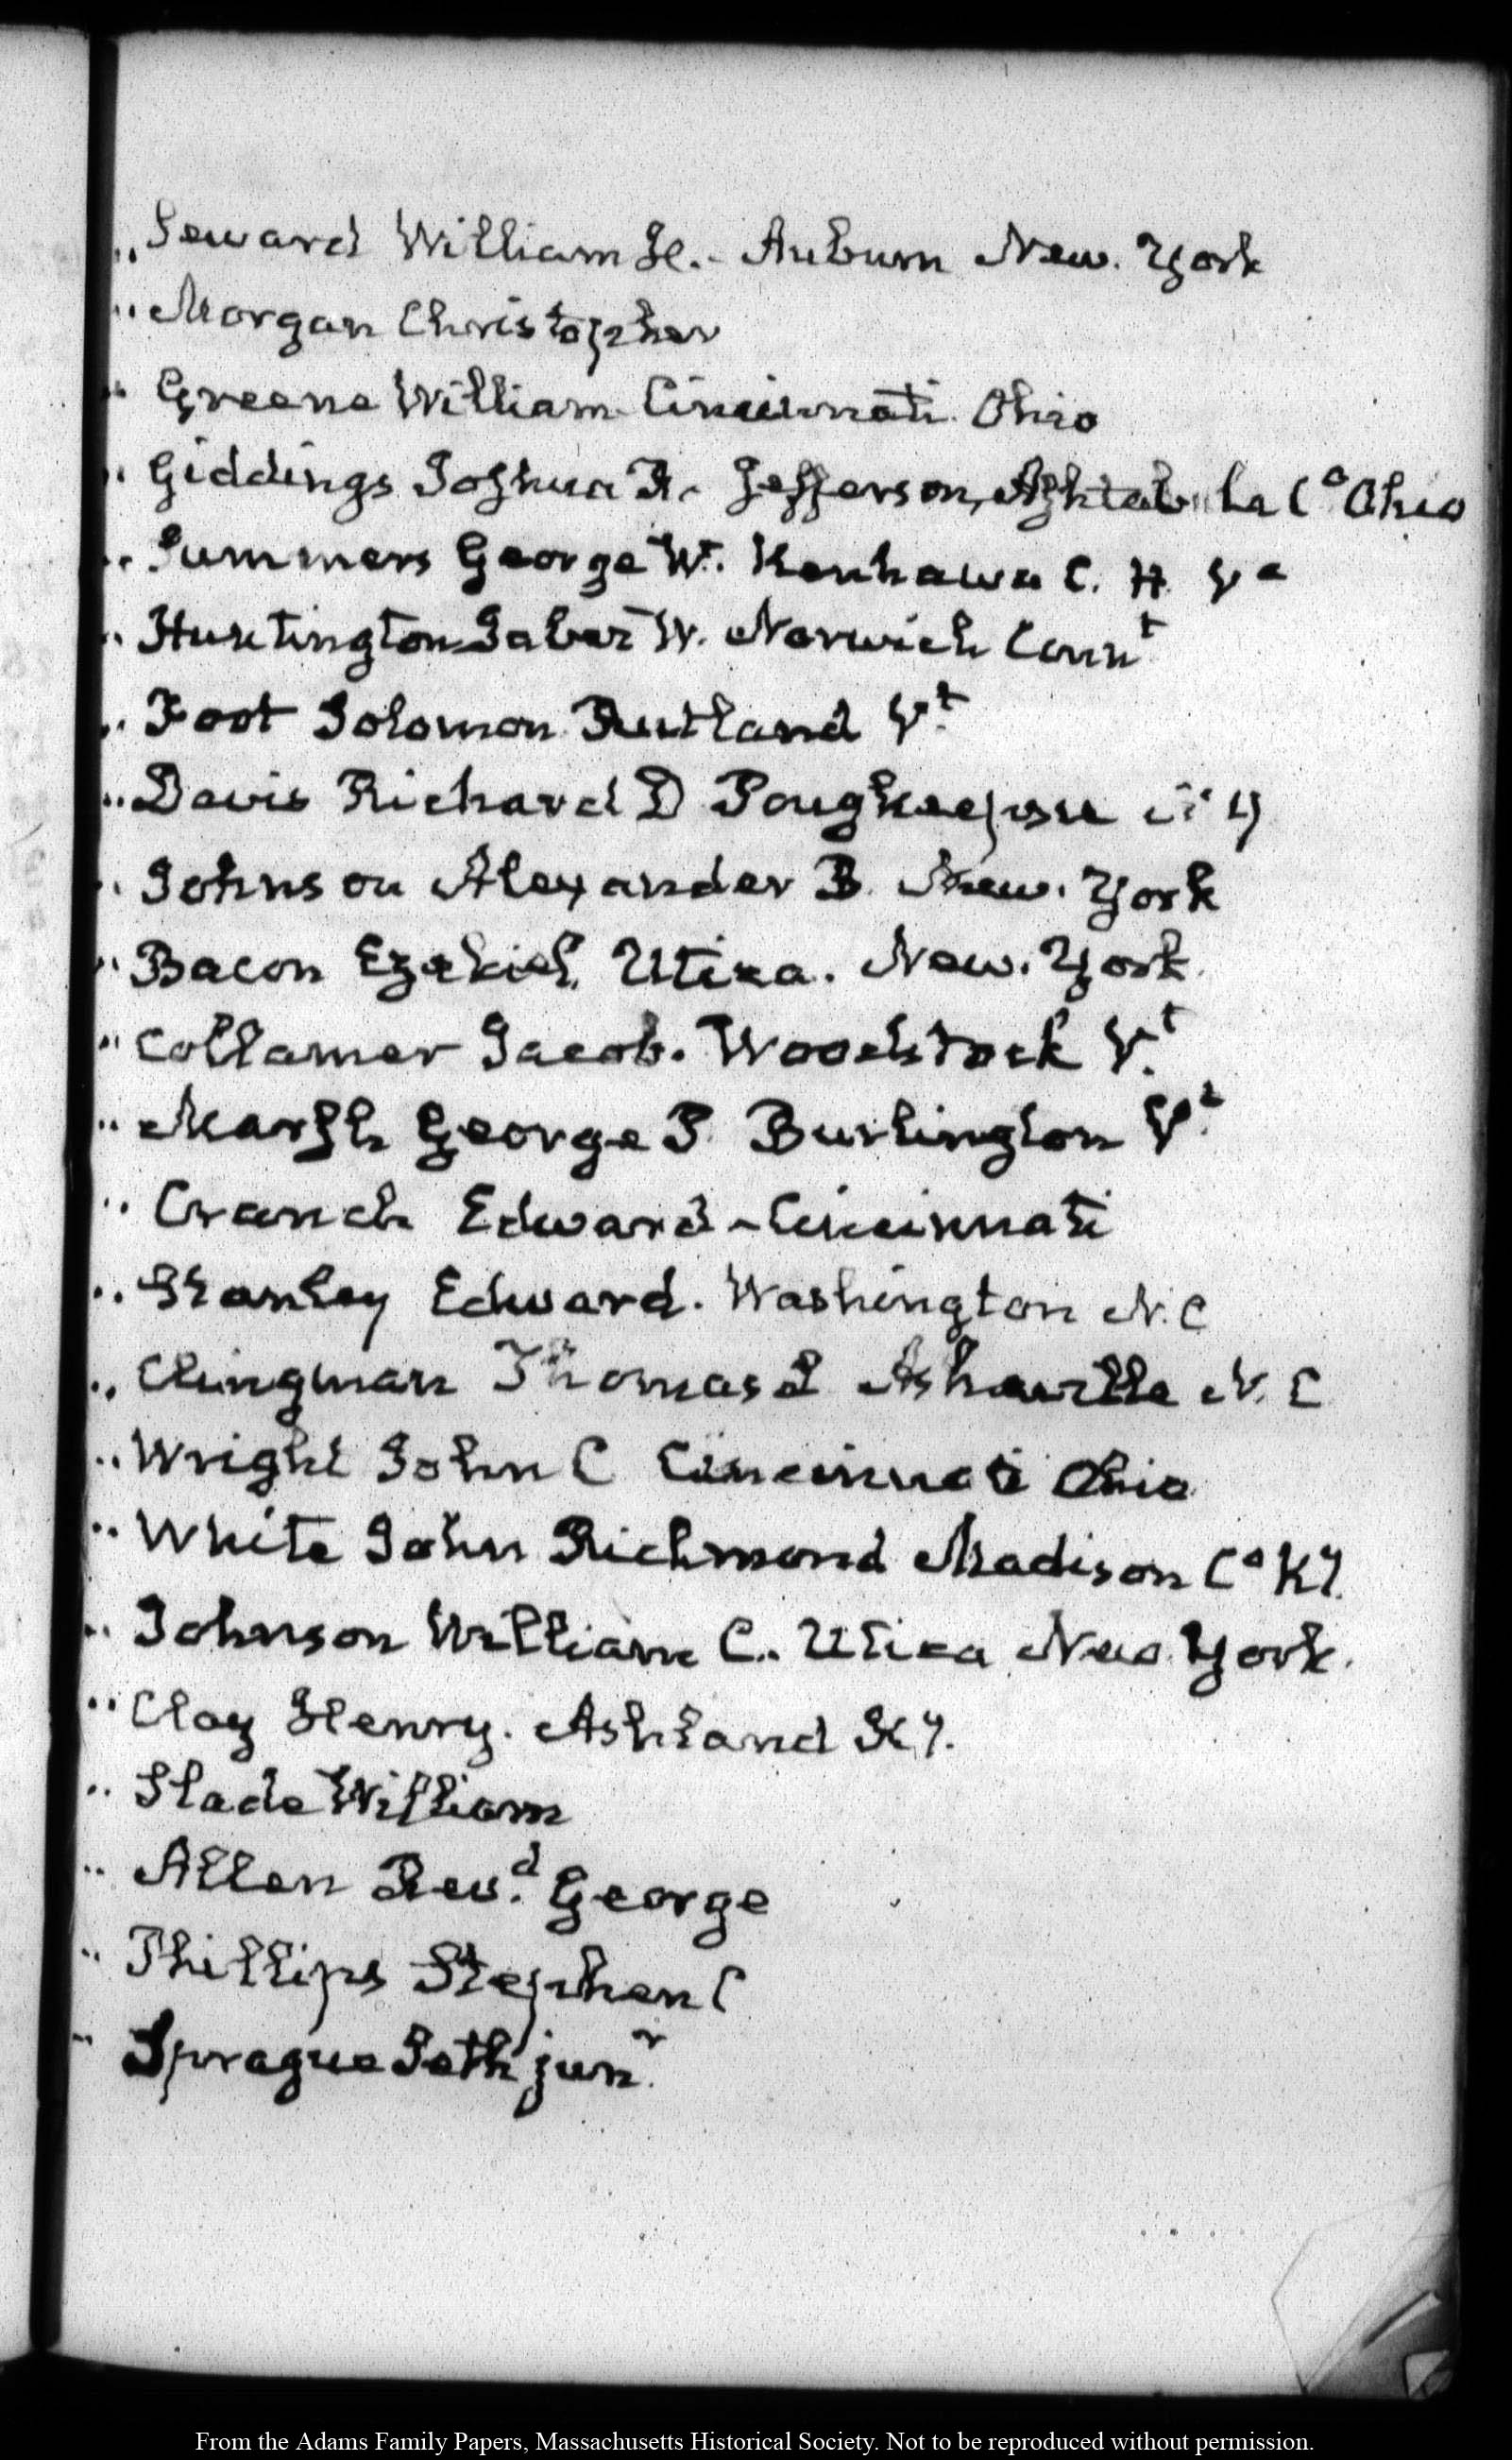 " Seward William H.- Auburn New. York
" Morgan Christopher
" Greene William Cincinnati Ohio
" Giddings Joshua R. Jefferson, Ashtabula Co Ohio
" Summers George W. Kenhawa C. H. Va
" Huntington Jabez W. Norwich Connt
" Foot Solomon Rutland Vt
" Davis Richard D Poughkeepsie N Y
" Johnson Alexander B. New. York
" Bacon Ezekiel. Utica. New. York.
" Collamer Jacob. Woodstock V.t
" Marsh George P. Burlington V.t
" Cranch Edward - Cincinnati
" Stanley Edward. Washington N. C
" Clingman Thomas L Asheville N. C
" Wright John C Cincinnati Ohio
" White John Richmond Madison Co Ky.
" Johnson William C. Utica New York.
" Clay Henry. Ashland Ky.
" Slade William
" Allen Rev.d George
" Phillips Stephen C
" Sprague Seth junr.
From the Adams Family Papers, Massachusetts Historical Society. Not to be reproduced without permission.